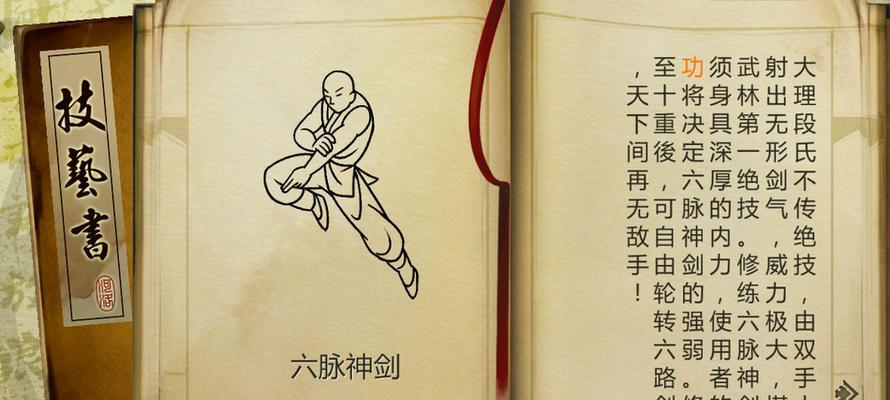 技藝書
河洛
六脉神剑
大理段氏不传绝技，由双手
射出无形剑气，威力极大，
武林第一绝技。修练六脉神
须身具深厚的内力，使用者
功将决定六脉神剑的强弱。
至十重後，可自由轮转六路
，天下间再无敌手！